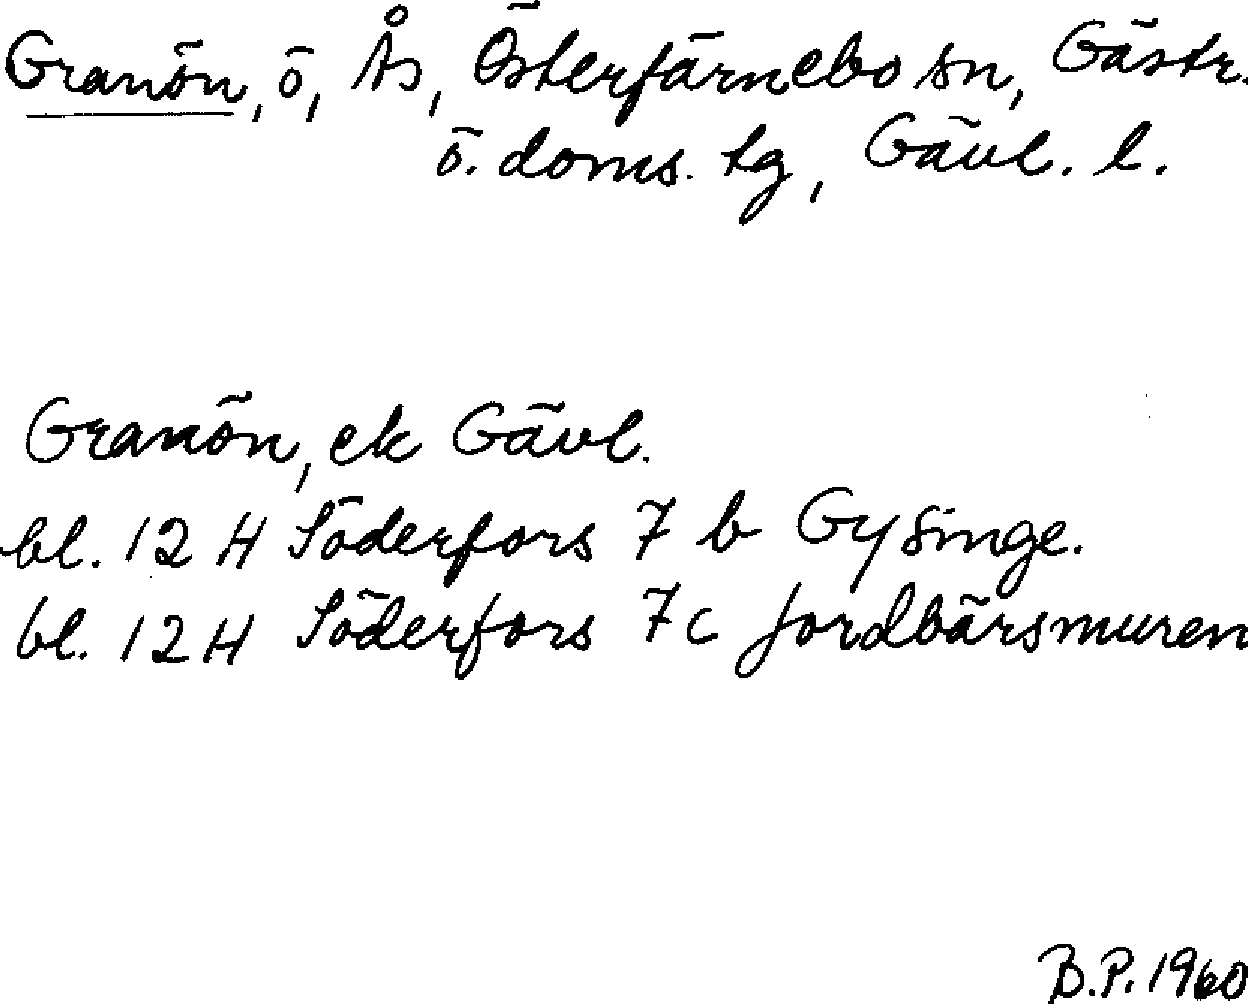 Granön, ö, Ås, Österfärnebo sn, Gästr.
ö. doms. tg, Gävl. l.
Granön, ek Gävl.
bl. 12 H Söderfors 7 b Gysinge.
bl. 12 H Söderfors 7 c Jordbärsmuren
B.P. 1960